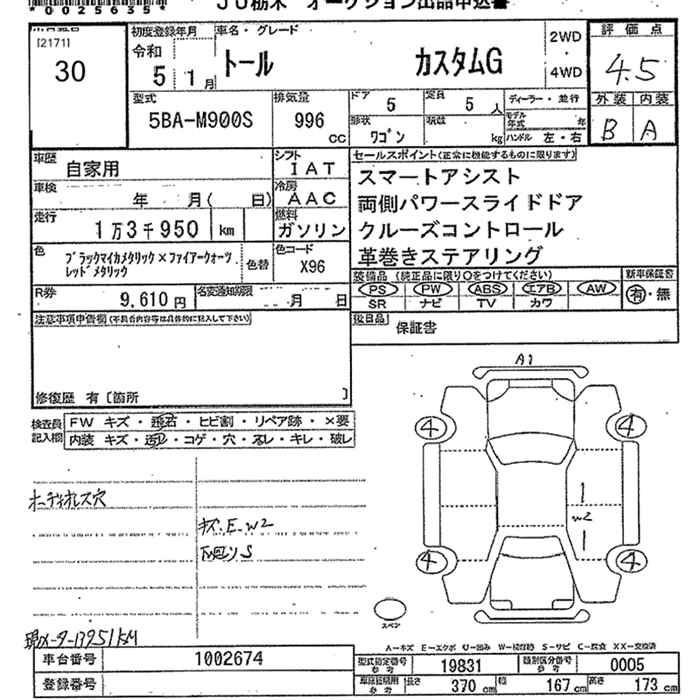 *0025635*
JU栃木 オークション出品申込書
[2171]
30
初度登録年月
令和
5 1月
車名・グレード
トール カスタムG
2WD
・
4WD
評価点
4.5
外装 内装
B A
型式
5BA-M900S
排気量
996 cc
ドア 5
定員 5 人
形状 ワゴン
積載 kg
ディーラー・並行
モデル年式 年
ハンドル 左・右
車歴 自家用
シフト IAT
車検 年 月( 日)
冷房 AAC
走行 1万3千950 km
燃料 ガソリン
色 ブラックマイカメタリック×ファイアークォーツレッドメタリック
色替
色コード X96
R券 9,610円
名変通知期限 月 日
セールスポイント(正常に機能するものに限ります)
スマートアシスト
両側パワースライドドア
クルーズコントロール
革巻きステアリング
装備品(純正品に限り○をつけてください)
PS PW ABS エアB AW
SR ナビ TV カワ
新車保証書
有・無
後日品 保証書
注意事項申告欄(不具合内容等は具体的に記入して下さい)
修復歴 有〔箇所 〕
検査員記入欄
FW キズ・飛石・ヒビ割・リペア跡・×要
内装 キズ・汚レ・コゲ・穴・スレ・キレ・破レ
オーディオレス穴
キズ.E.W2
下廻リS
現メーター13951KM
A1
4 4
W2
4 4
スペア
A-キズ E-エクボ U-凹み W-補修跡 S-サビ C-腐食 XX-交換済
車台番号 1002674
登録番号
型式指定番号 参考 19831
類別区分番号 参考 0005
車検証積用 参考 長さ 370 cm 幅 167 cm 高さ 173 cm